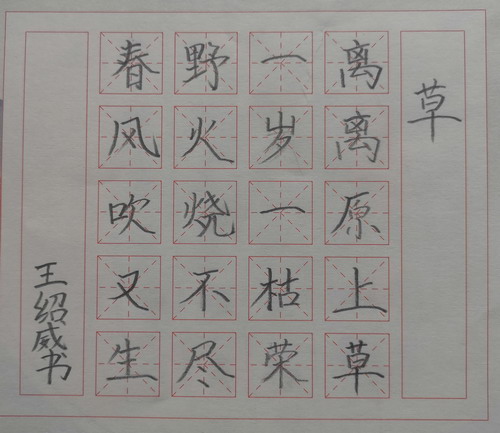 草
离离原上草
一岁一枯荣
野火烧不尽
春风吹又生
王绍威书